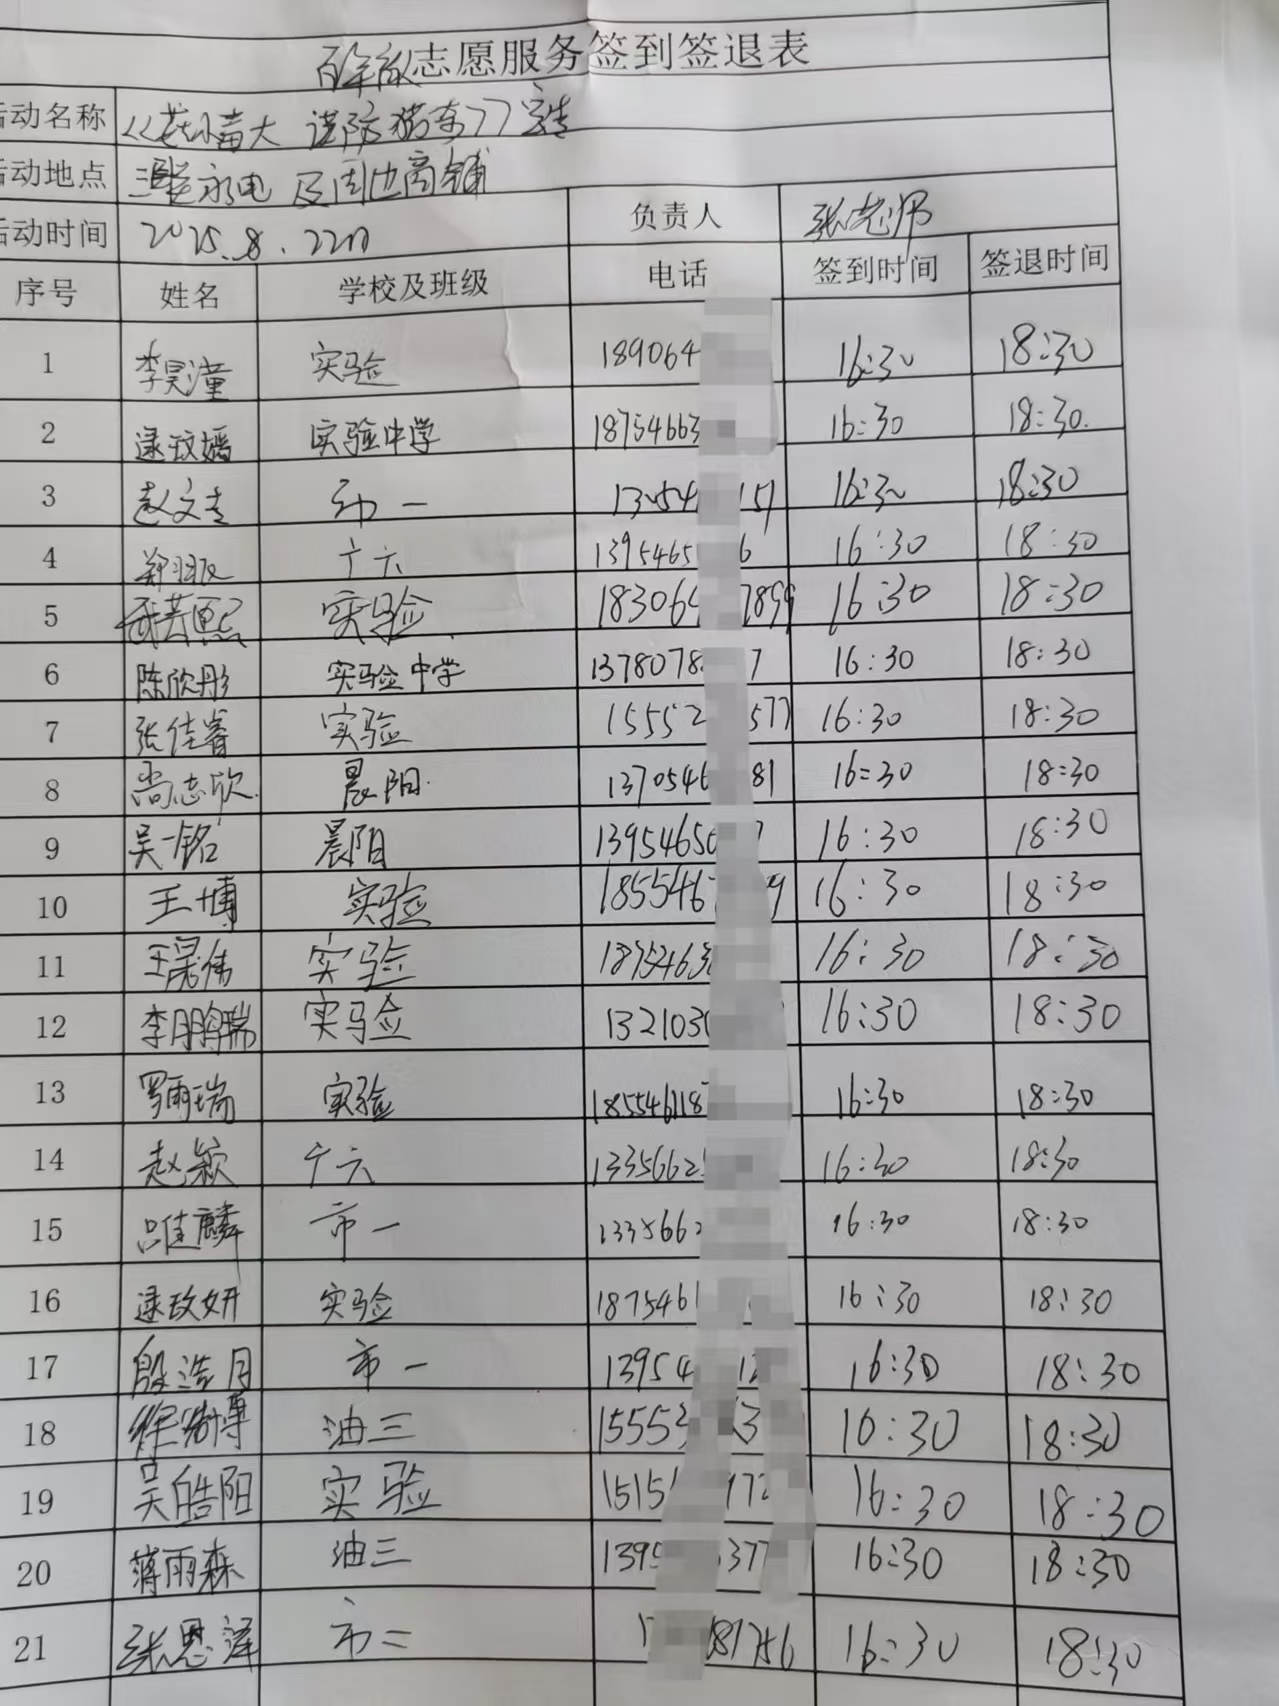 志愿服务签到签退表
活动名称
活动地点 及周边商铺
活动时间 2025.8.22日 负责人 张老师
序号 姓名 学校及班级 电话 签到时间 签退时间
1 李昊潼 实验 189064 16:30 18:30
2 逯玟嫣 实验中学 18754663 16:30 18:30
3 市一 151 16:30 18:30
4 十六 1395465 6 16:30 18:30
5 实验 18306 7899 16:30 18:30
6 陈欣彤 实验中学 1378078 7 16:30 18:30
7 张佳睿 实验 15552 577 16:30 18:30
8 尚志欣 晨阳 1370546 81 16:30 18:30
9 吴一铭 晨阳 13954650 16:30 18:30
10 王博 实验 1855467 9 16:30 18:30
11 王昊伟 实验 1875463 16:30 18:30
12 李鹏瑞 实验 132103 16:30 18:30
13 罗雨瑞 实验 185546118 16:30 18:30
14 赵颖 十六 1335662 16:30 18:30
15 吕佳麟 市一 1335662 16:30 18:30
16 逯玟妍 实验 1875461 16:30 18:30
17 殷浩月 市一 13954 12 16:30 18:30
18 油三 15553 3 16:30 18:30
19 吴皓阳 实验 1515 172 16:30 18:30
20 蒋雨森 油三 1395 377 16:30 18:30
21 张恩泽 市二 1 81756 16:30 18:30